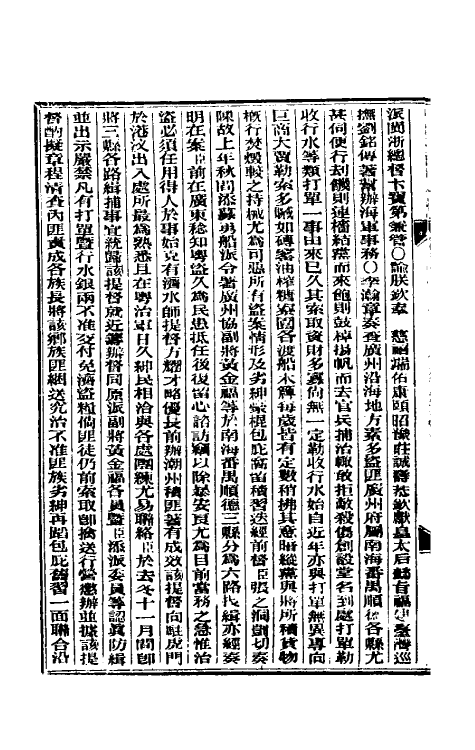 派閩浙總督卞寶第兼管○諭朕欽奉　慈禧端佑康頤昭豫莊誠壽恭欽獻皇太后懿旨福建臺灣巡
撫劉銘傳著幫辦海軍事務○李瀚章奏查廣州沿海地方素多盜匪廣州府屬南海番禺順德各縣尤
甚伺便行刦饑則連檣結黨而來飽則鼓棹揚帆而去官兵捕治輒敢拒敵殺傷創設堂名到處打單勒
收行水等類打單一事由來已久其索取貲財多寡尚無一定勒收行水始自近年亦與打單無異專向
巨商大賈勒索多贓如磚窰油榨糖寮圍各渡船木簰每歲皆有定數稍拂其意暗縱黨與將所積貨物
概行焚燬較之持械尤為可惡所有盜案情形及劣紳豪棍包庇窩留積習迭經前督臣張之洞剴切奏
陳故上年秋間添募勇船派令署廣州協副將黃金福等於南海番禺順德三縣分為六路找緝亦經奏
明在案臣前在廣東稔知粵盜久為民患抵任後復留心諮訪竊以除暴安良尤為目前當務之急惟治
盜必須任用得人於事始克有濟水師提督方耀才略優長前辦潮州積匪著有成效該提督向駐虎門
於港汊出入處所最為熟悉且在粵治軍日久紳民相洽與各處團練尤易聯絡臣於去冬十一月間即
將三縣各路緝捕事宜統歸該提督就近籌辦督同原派副將黃金福各員暨臣添派委員等認真防緝
並出示嚴禁凡有打單暨行水銀兩不准交付免濟盜糧倘匪徒仍前索取卽擒送行營懲辦並據該提
督酌擬章程清查內匪責成各族長將該鄉族匪綑送究治不准匪族劣紳再蹈包庇舊習一面聯合沿